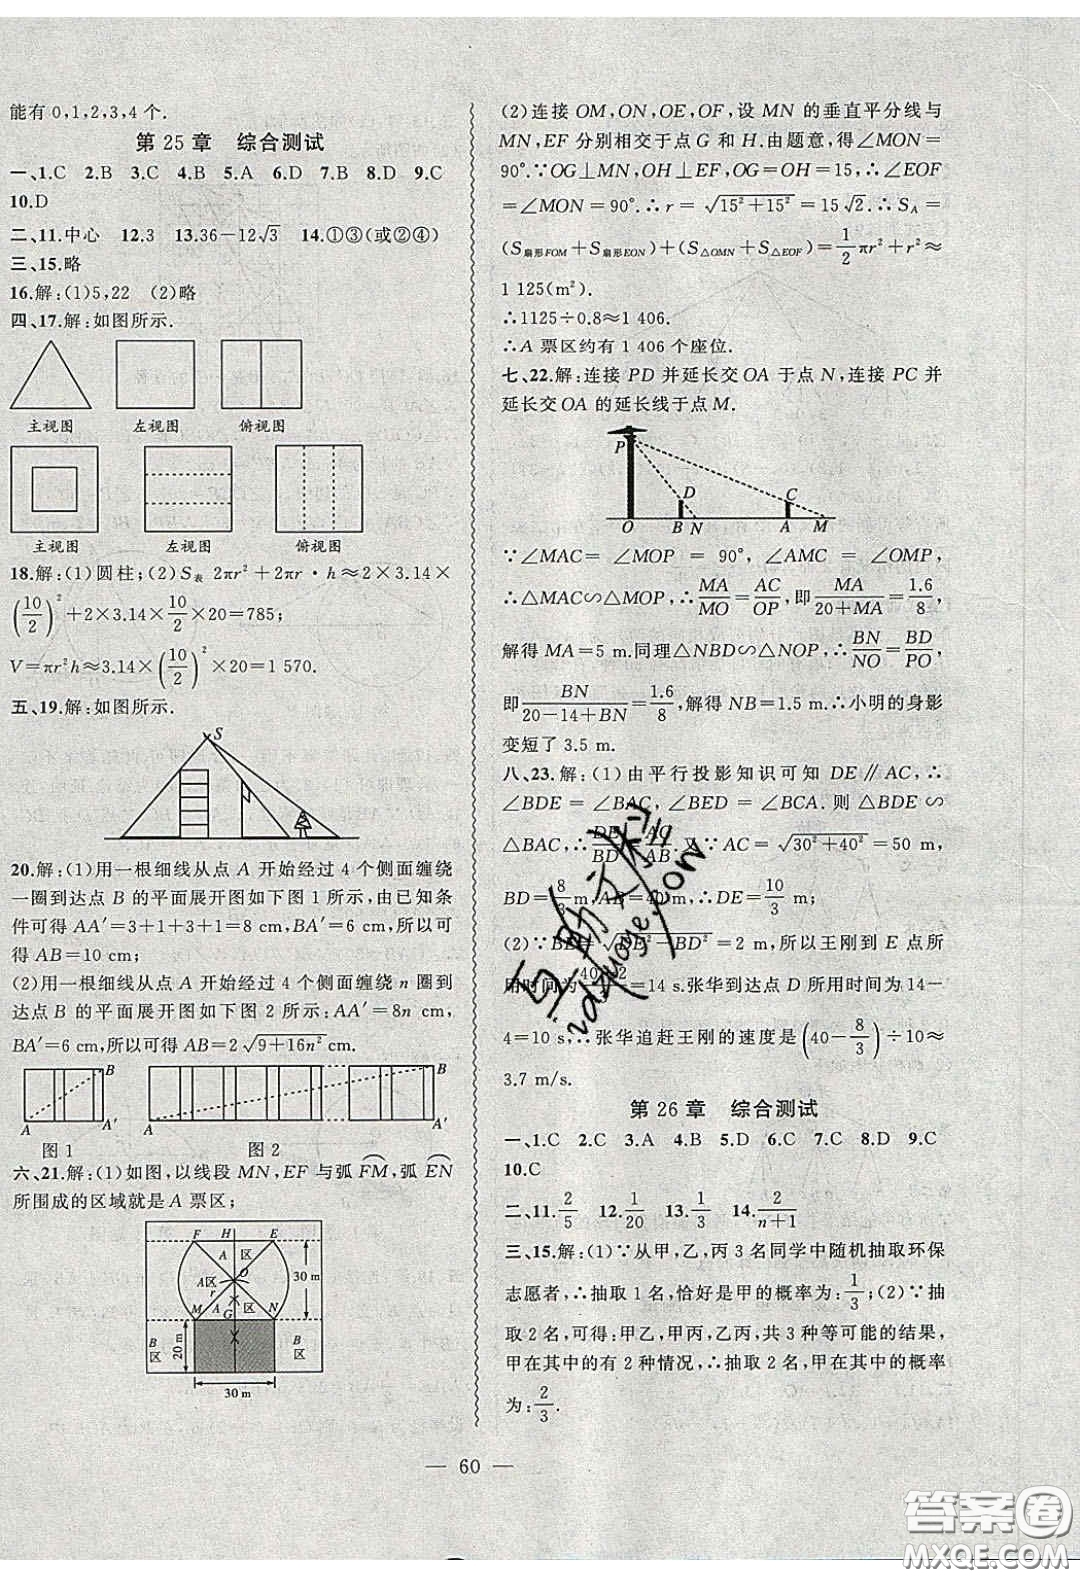 能有 0,1,2,3,4 个.
第 25 章 综合测试
一、1.C 2.B 3.C 4.B 5.A 6.D 7.B 8.D 9.C
10.D
二、11.中心 12.3 13.36－12√3 14.①③(或②④)
三、15.略
16.解:(1)5,22 (2)略
四、17.解:如图所示.
主视图 左视图 俯视图
主视图 左视图 俯视图
18.解:(1)圆柱;(2)S表 2πr²＋2πr·h≈2×3.14×
(10/2)²＋2×3.14×10/2×20＝785;
V＝πr²h≈3.14×(10/2)²×20＝1 570.
五、19.解:如图所示.
S
20.解:(1)用一根细线从点 A 开始经过 4 个侧面缠绕
一圈到达点 B 的平面展开图如下图 1 所示,由已知条
件可得 AA′＝3＋1＋3＋1＝8 cm,BA′＝6 cm,所以可
得 AB＝10 cm;
(2)用一根细线从点 A 开始经过 4 个侧面缠绕 n 圈到
达点 B 的平面展开图如下图 2 所示:AA′＝8n cm,
BA′＝6 cm,所以可得 AB＝2√(9＋16n²) cm.
B A A′ B A A′
图 1 图 2
六、21.解:(1)如图,以线段 MN,EF 与弧 FM,弧 EN
所围成的区域就是 A 票区;
F H E
A 区
A区 O 30 m
r
M A G 区 N
B 区 20 m B 区
30 m
(2)连接 OM,ON,OE,OF,设 MN 的垂直平分线与
MN,EF 分别相交于点 G 和 H.由题意,得∠MON＝
90°.∵OG⊥MN,OH⊥EF,OG＝OH＝15,∴∠EOF
＝∠MON＝90°.∴r＝√(15²＋15²)＝15√2.∴S_A＝
(S扇形FOM＋S扇形EON)＋(S△OMN＋S△EOF)＝1/2πr²＋r²≈
1 125(m²).
∴1125÷0.8≈1 406.
∴A 票区约有 1 406 个座位.
七、22.解:连接 PD 并延长交 OA 于点 N,连接 PC 并
延长交 OA 的延长线于点 M.
P
D C
O B N A M
∵∠MAC＝∠MOP＝90°,∠AMC＝∠OMP,
∴△MAC∽△MOP,∴MA/MO＝AC/OP,即MA/(20＋MA)＝1.6/8,
解得 MA＝5 m.同理△NBD∽△NOP,∴BN/NO＝BD/PO,
即BN/(20－14＋BN)＝1.6/8,解得 NB＝1.5 m.∴小明的身影
变短了 3.5 m.
八、23.解:(1)由平行投影知识可知 DE∥AC,∴
∠BDE＝∠BAC,∠BED＝∠BCA.则△BDE∽
△BAC,∴DE/BD＝AC/AB.又∵AC＝√(30²＋40²)＝50 m,
BD＝8/3 m,AB＝40 m,∴DE＝10/3 m;
(2)∵BE＝√(DE²－BD²)＝2 m,所以王刚到 E 点所
用时间为(40＋2)/3＝14 s.张华到达点 D 所用时间为 14－
4＝10 s,∴张华追赶王刚的速度是(40－8/3)÷10≈
3.7 m/s.
第 26 章 综合测试
一、1.C 2.C 3.A 4.B 5.D 6.C 7.C 8.D 9.C
10.C
二、11.2/5 12.1/20 13.1/3 14.2/(n＋1)
三、15.解:(1)∵从甲,乙,丙 3 名同学中随机抽取环保
志愿者,∴抽取 1 名,恰好是甲的概率为:1/3;(2)∵抽
取 2 名,可得:甲乙,甲丙,乙丙,共 3 种等可能的结果,
甲在其中的有 2 种情况,∴抽取 2 名,甲在其中的概率
为:2/3.
— 60 —
答案圈
MXQE.COM